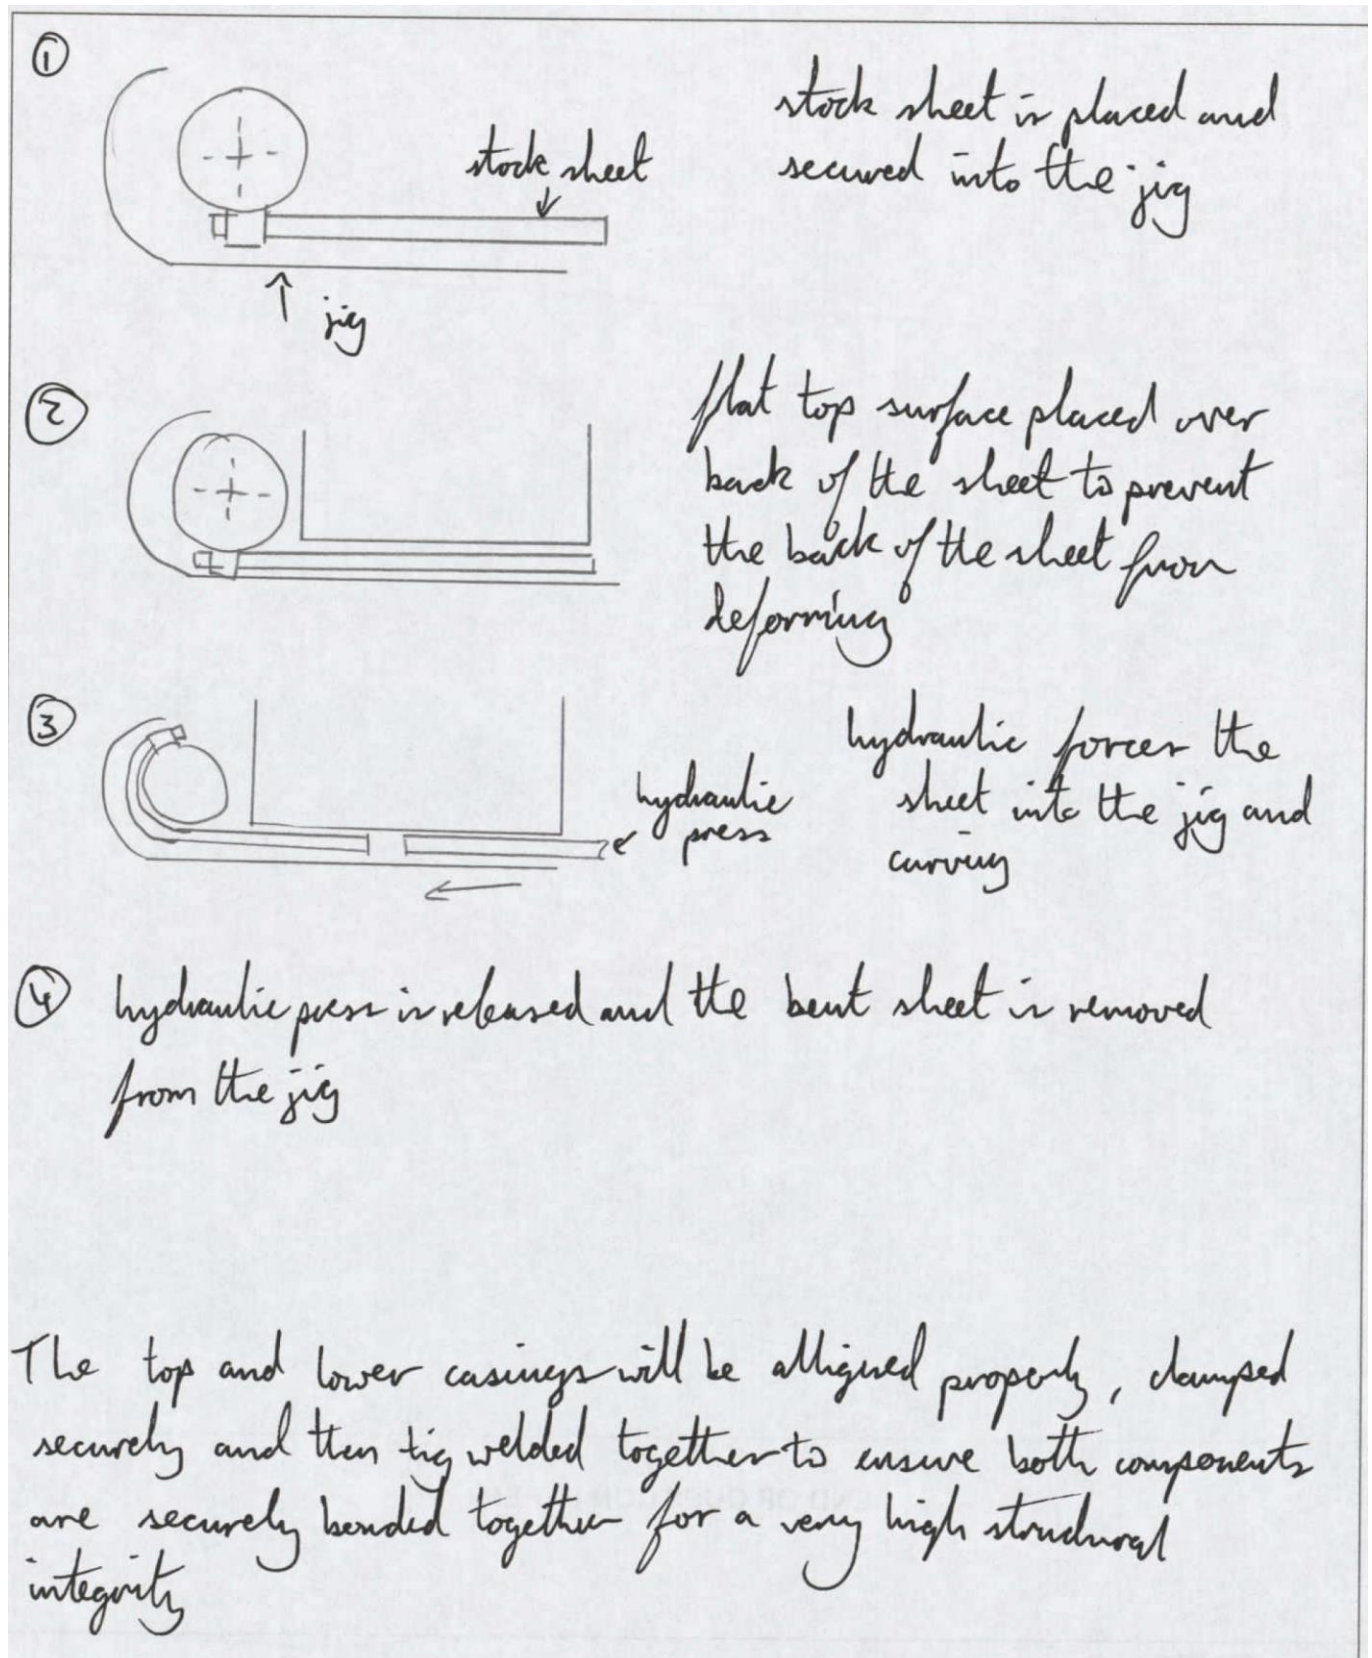 ①
stock sheet is placed and
secured into the jig
stock sheet
jig
②
flat top surface placed over
back of the sheet to prevent
the back of the sheet from
deforming
③
hydraulic forces the
sheet into the jig and
curving
hydraulic
press
④ hydraulic press is released and the bent sheet is removed
from the jig
The top and lower casings will be alligned properly, clamped
securely and then tig welded together to ensure both components
are securely bonded together for a very high structural
integrity